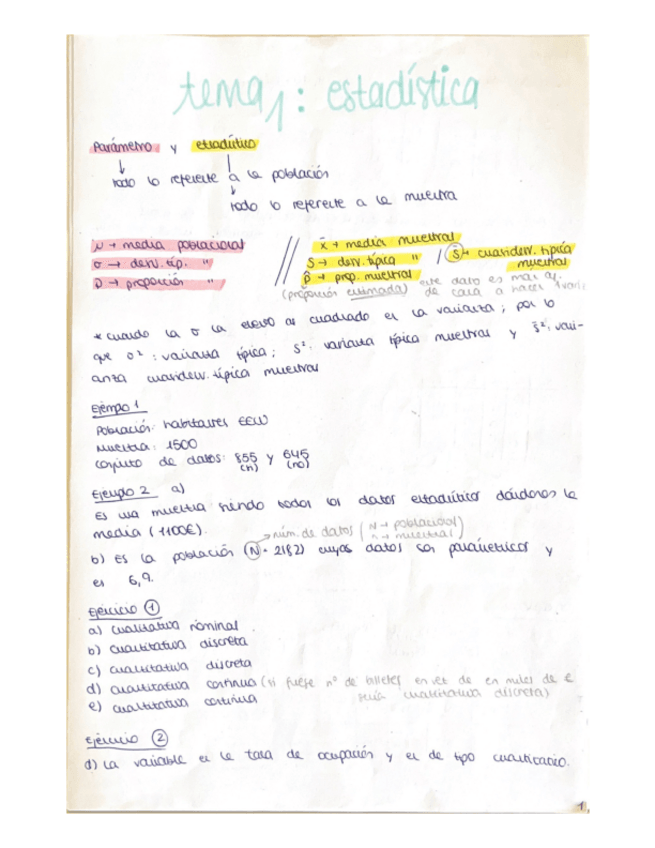 tema 1: estadística
Parámetro y estadístico
↓
todo lo referente a la población
↓
todo lo referente a la muestra
μ → media poblacional // x̄ → media muestral
σ → desv. típ. " S → desv. típica " / Ŝ → cuasidesv. típica muestral
p → proporción " p̂ → prop. muestral
(proporción estimada) este dato es más
de cara a hacer
* cuando la σ la elevo al cuadrado es la varianza; por lo
que σ²: varianza típica; S²: varianza típica muestral y Ŝ²: vari-
anza cuasidesv. típica muestral
Ejemplo 1
Población: habitantes EEUU
Muestra: 1500
conjunto de datos: 855 y 645
(sí) (no)
Ejemplo 2 a)
Es una muestra siendo todos los datos estadísticos dándonos la
media (1100€).
→ núm. de datos (N → poblacional
n → muestral)
b) Es la población (N = 2182) cuyos datos son paramétricos y
es 6,9.
Ejercicio 1
a) cualitativa nominal
b) cuantitativa discreta
c) cuantitativa discreta
d) cuantitativa continua (si fuese nº de billetes en vez de en miles de €
sería cuantitativa discreta)
e) cuantitativa continua
Ejercicio 2
d) La variable es la tasa de ocupación y es de tipo
1